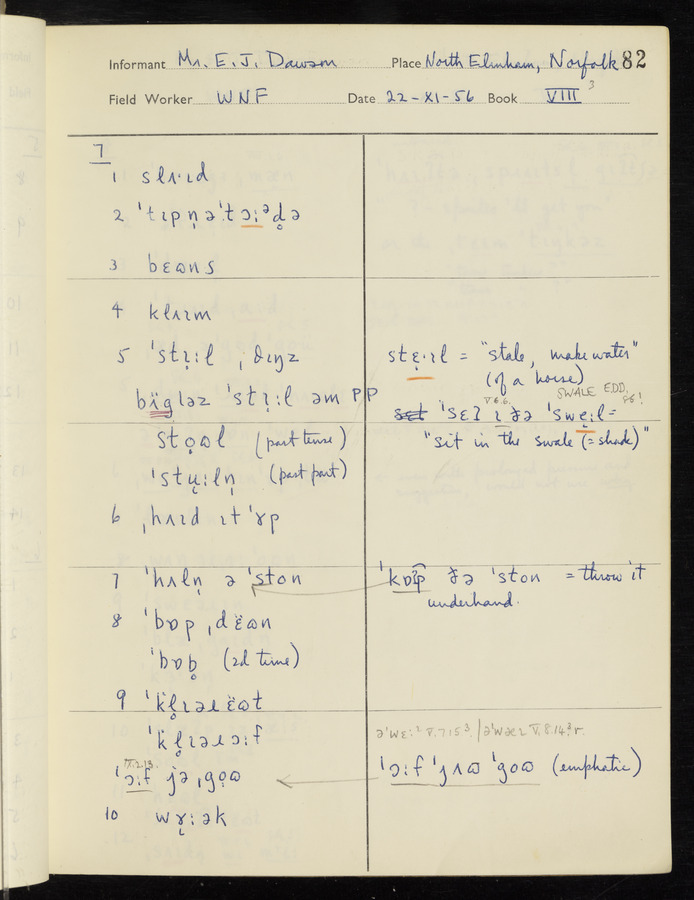 Informant Mr. E. J. Dawson Place North Elmham, Norfolk 82
Field Worker WNF Date 22-XI-56 Book VIII 3
7
1 slʌ·ɪd
2 ˈtɪpn̩əˈtɔ:ᵊd̥ə
3 bɛωns
4 klʌɪm
5 ˈstɪ̞:l ˌðɪŋz
bïgləz ˈstɪ̞:l əm PP
stọωl (past tense)
ˈstu̞:ln̩ (past part)
6 ˌhʌɪd ɪt ˈɤp
7 ˈhʌln̩ ə ˈston
8 ˈbɒp ˌdɛ̈ωn
ˈbɒb̥ (2d time)
9 ˈkl̥ɪəɹ ɛ̈ωt
ˈkl̥ɪəɹ ɔ:f
IX.2.13.
ˈɔ:f jə ˌgọω
10 wɤ̞:ək
stẹ·ɪl = "stale, make water"
(of a horse)
SWALE E.D.D.
sb!
V.6.6.
set ˈsɛʔ ɪ ðə ˈswẹ:l =
"sit in the swale (= shade)"
ˈkɒʔp ðə ˈston = throw it
underhand.
əˈwɛ:² V.7.15³. / əˈwæɪ V.8.14³r.
ˈɔ:f ˈjʌω ˈgoω (emphatic)